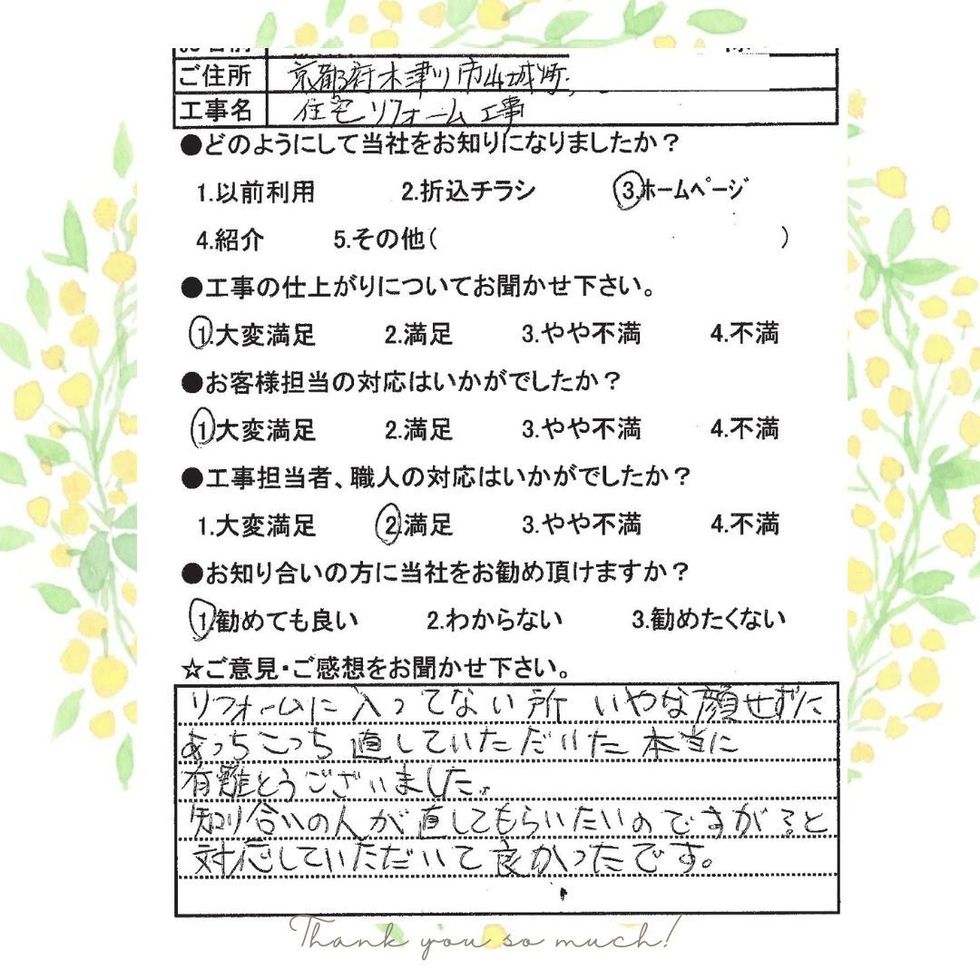 ご住所 京都府木津川市山城町
工事名 住宅リフォーム工事
●どのようにして当社をお知りになりましたか？
1.以前利用 2.折込チラシ 3.ホームページ
4.紹介 5.その他( )
●工事の仕上がりについてお聞かせ下さい。
1.大変満足 2.満足 3.やや不満 4.不満
●お客様担当の対応はいかがでしたか？
1.大変満足 2.満足 3.やや不満 4.不満
●工事担当者、職人の対応はいかがでしたか？
1.大変満足 2.満足 3.やや不満 4.不満
●お知り合いの方に当社をお勧め頂けますか？
1.勧めても良い 2.わからない 3.勧めたくない
☆ご意見・ご感想をお聞かせ下さい。
リフォームに入ってない所 いやな顔せずに
あっちこっち直していただいた 本当に
有難とうございました。
知り合いの人が直してもらいたいのですが？と
対応していただいて良かったです。
Thank you so much!